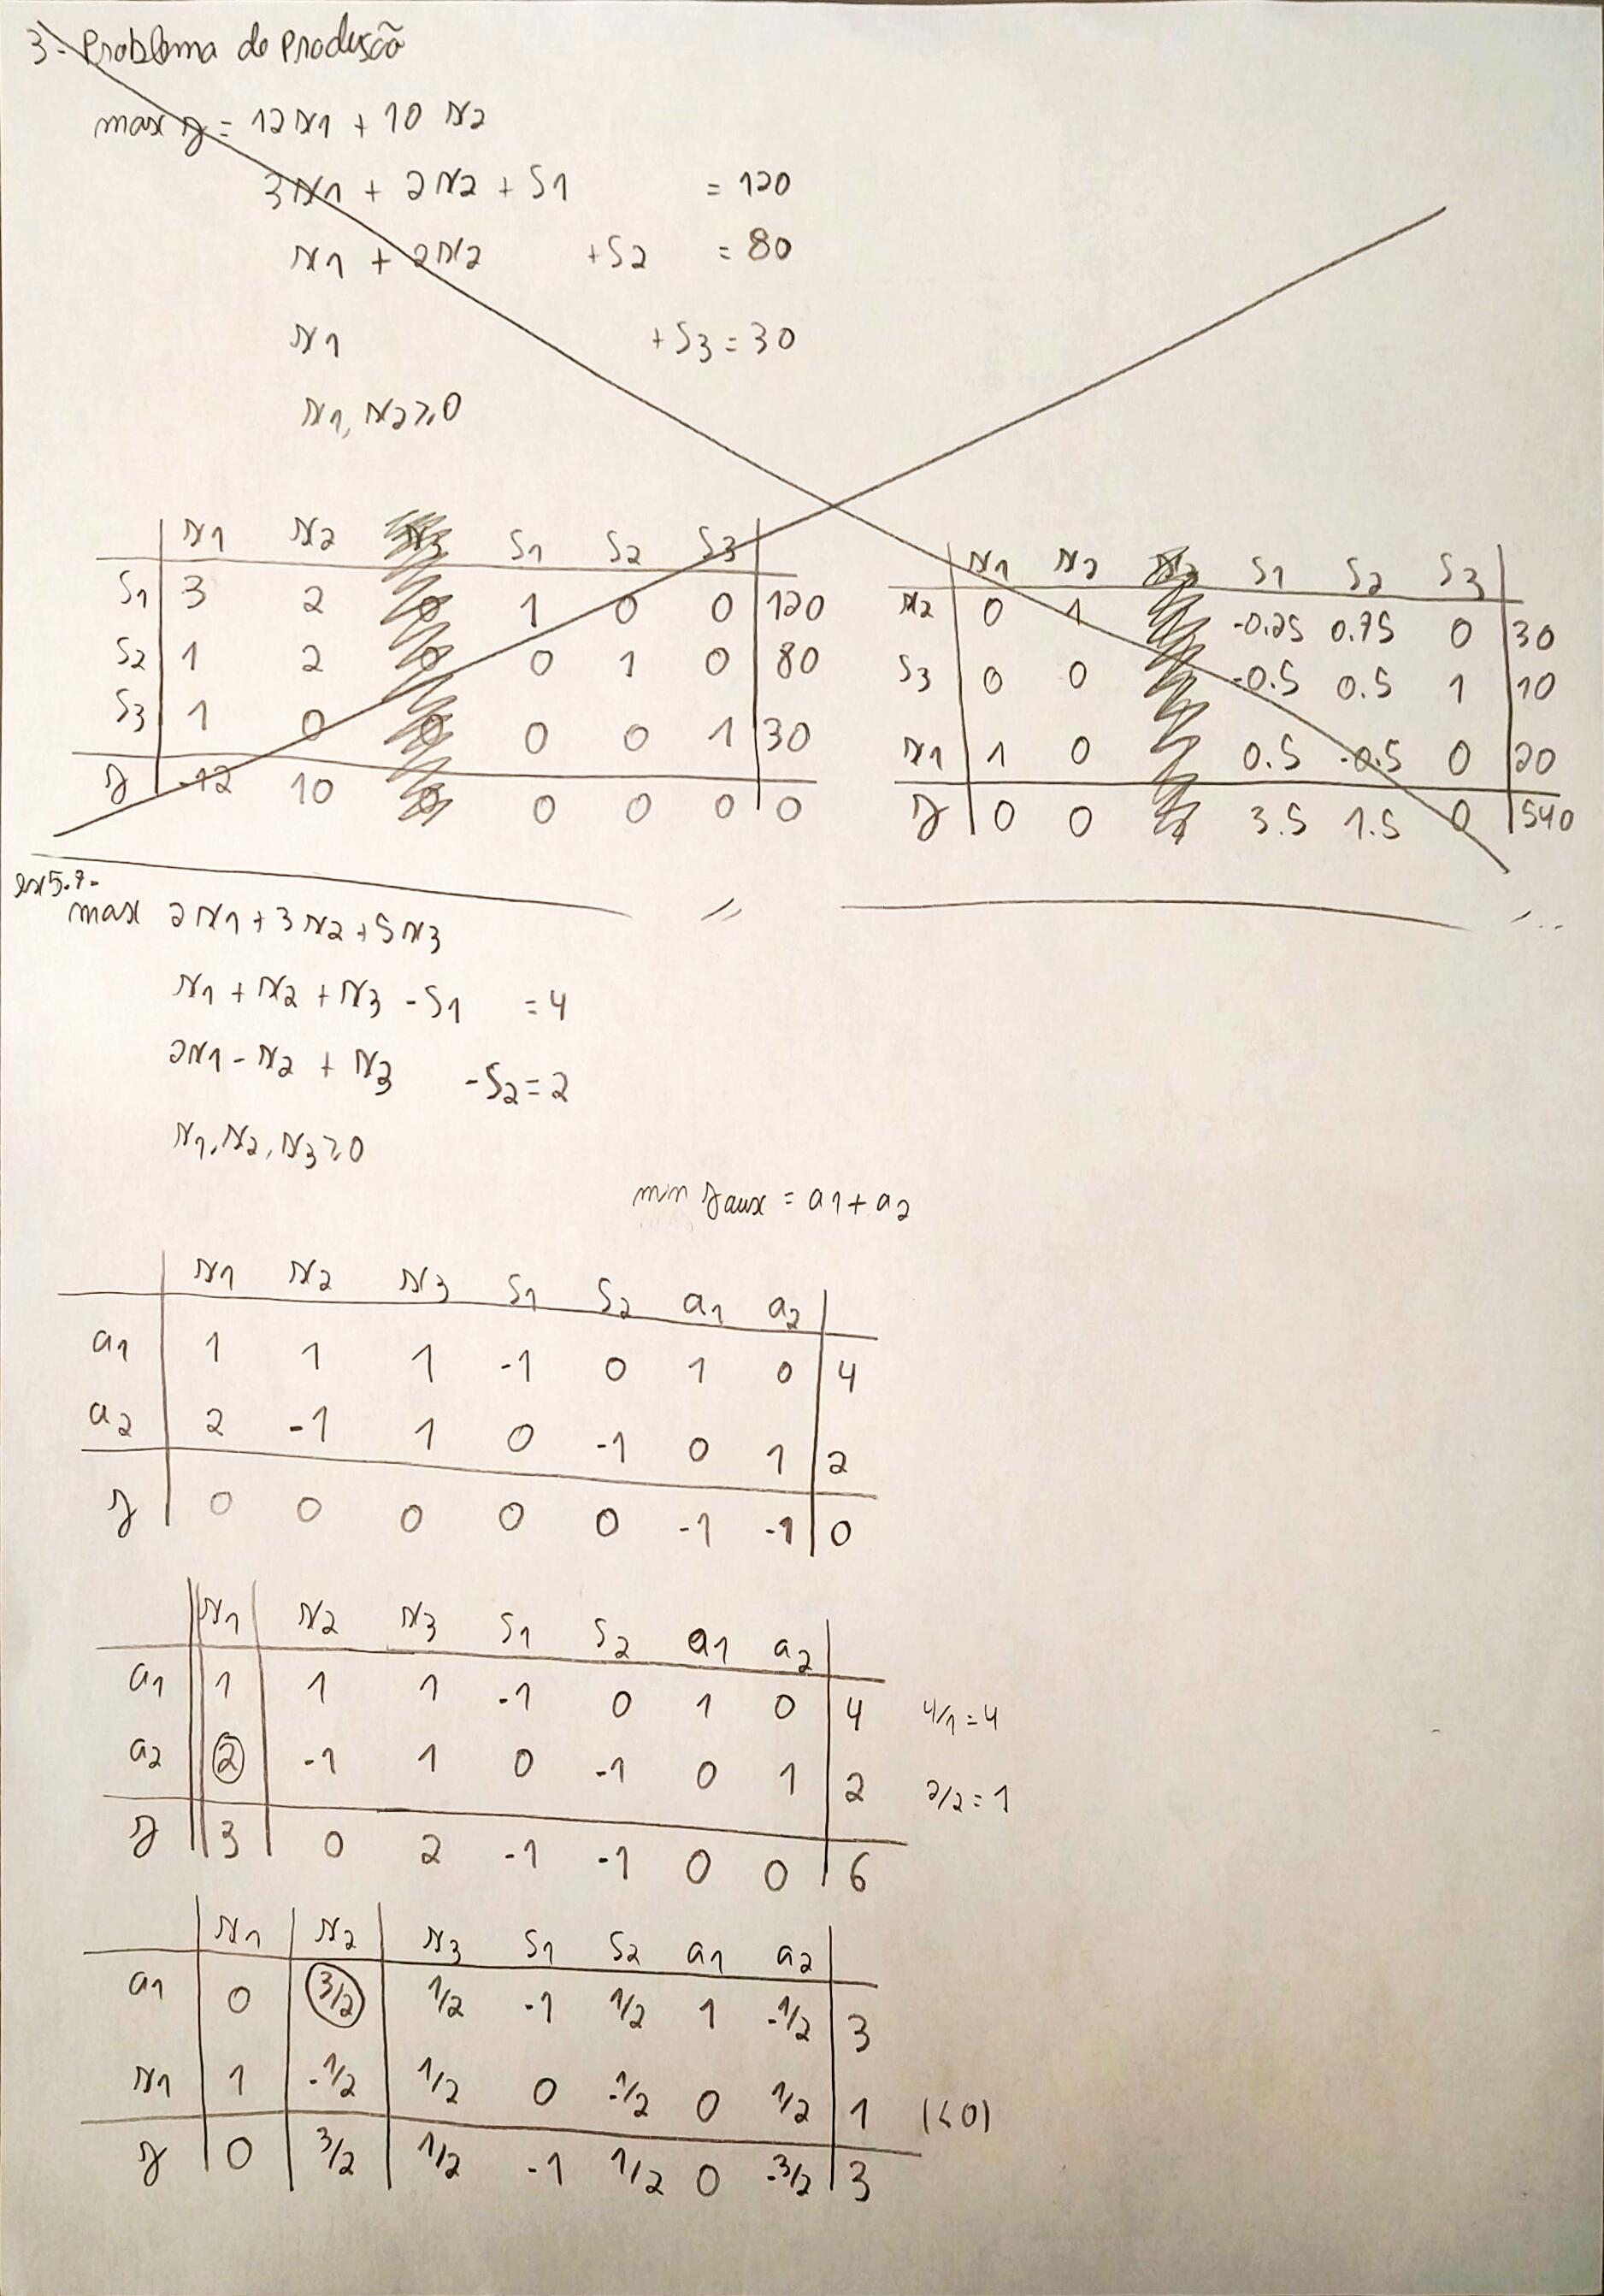 3- Problema de Produção
max z = 12x1 + 10 x2
3x1 + 2x2 + S1 = 120
x1 + 2x2 + S2 = 80
x1 + S3 = 30
x1, x2 ≥ 0
x1 x2 S1 S2 S3
S1 3 2 0 1 0 0 120
S2 1 2 0 0 1 0 80
S3 1 0 0 0 0 1 30
z -12 10 0 0 0 0 0
x1 x2 S1 S2 S3
x2 0 1 -0.25 0.75 0 30
S3 0 0 -0.5 0.5 1 10
x1 1 0 0.5 -0.5 0 20
z 0 0 3.5 1.5 0 540
max 2x1 + 3x2 + 5x3
x1 + x2 + x3 - S1 = 4
2x1 - x2 + x3 - S2 = 2
x1, x2, x3 ≥ 0
min zaux = a1 + a2
x1 x2 x3 S1 S2 a1 a2
a1 1 1 1 -1 0 1 0 4
a2 2 -1 1 0 -1 0 1 2
z 0 0 0 0 0 -1 -1 0
x1 x2 x3 S1 S2 a1 a2
a1 1 1 1 -1 0 1 0 4 4/1 = 4
a2 2 -1 1 0 -1 0 1 2 2/2 = 1
z 3 0 2 -1 -1 0 0 6
x1 x2 x3 S1 S2 a1 a2
a1 0 3/2 1/2 -1 1/2 1 -1/2 3
x1 1 -1/2 1/2 0 -1/2 0 1/2 1 (<0)
z 0 3/2 1/2 -1 1/2 0 -3/2 3